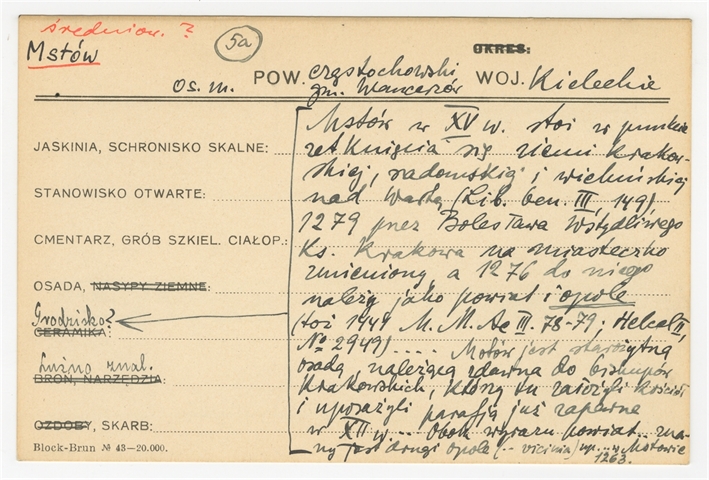 średniow. ?
5a
OKRES:
Mstów
os. m. POW. częstochowski WOJ. Kieleckie
gm. Wancerzów
Mstów w XV w. stoi w punkcie
JASKINIA, SCHRONISKO SKALNE: zetknięcia się ziemi krakow-
skiej, radomskiej i wieluńskiej
STANOWISKO OTWARTE: nad Wartą (Lib. ben. III, 149)
1279 przez Bolesława Wstydliwego
CMENTARZ, GRÓB SZKIEL. CIAŁOP.: Ks. Krakowa na miasteczko
zmieniony a 1276 do niego
OSADA, NASYPY ZIEMNE: należy jako powiat i opole
Grodzisko?
CERAMIKA: (toż 1449 M. M. Ae III. 78-79; Helcel II,
№ 2949) .... Mstów jest starożytną
Luźno znal. osadą, należącą zdawna do biskupów
BROŃ, NARZĘDZIA: Krakowskich, którzy tu założyli kościół
i uposażyli parafią już zapewne
OZDOBY, SKARB: w XII w. .. Obok wyrazu powiat .. zna-
ny jest drugi opole (-- vicinia) np. .. w Mstowie
1263.
Block-Brun № 43–20.000.